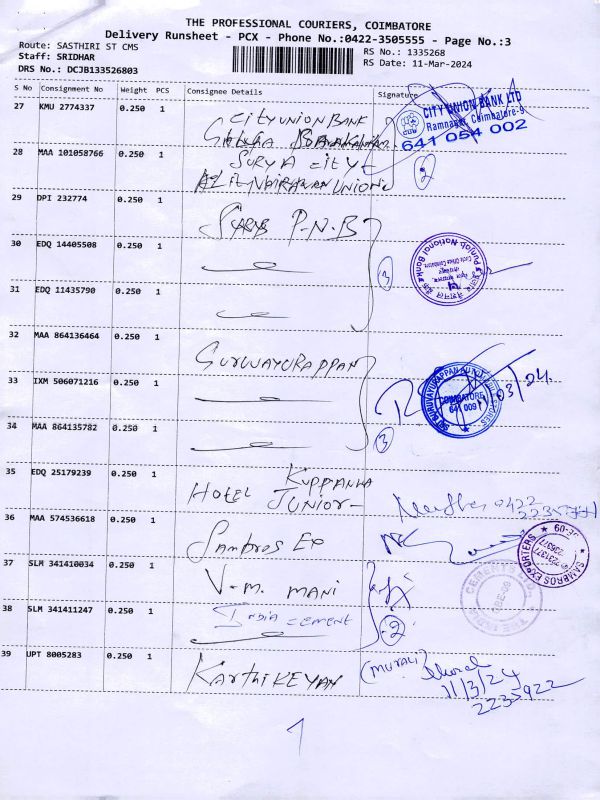 THE PROFESSIONAL COURIERS, COIMBATORE
Delivery Runsheet - PCX - Phone No.:0422-3505555 - Page No.:3
Route: SASTHIRI ST CMS
RS No.: 1335268
Staff: SRIDHAR
RS Date: 11-Mar-2024
DRS No.: DCJB133526803
S No Consignment No Weight PCS Consignee Details Signature
27 KMU 2774337 0.250 1 City Union Bank
CITY UNION BANK LTD
Ramnagar, Coimbatore-9
641 054 002
28 MAA 101058766 0.250 1 Surya City
2
29 DPI 232774 0.250 1 P.N.B
30 EDQ 14405508 0.250 1
3
Punjab National Bank
31 EDQ 11435790 0.250 1
32 MAA 864136464 0.250 1 Guruvayurappan
33 IXM 506071216 0.250 1
COIMBATORE
641 009
/03/24
34 MAA 864135782 0.250 1
3
35 EDQ 25179239 0.250 1 Hotel Kuppanna
Junior
0422
36 MAA 574536618 0.250 1 Sambros Ex
SAMBROS EXPORTERS
37 SLM 341410034 0.250 1 V.M. Mani
38 SLM 341411247 0.250 1 India Cement
2
39 UPT 8005283 0.250 1 Karthikeyan
(MURALI)
11/3/24
2235922
1